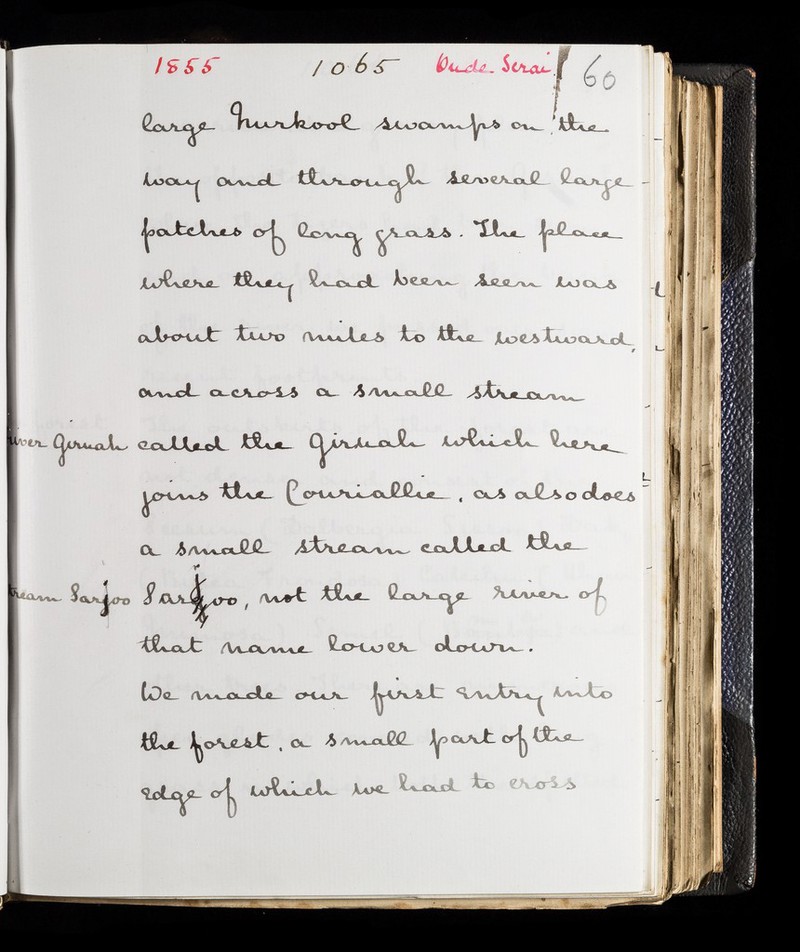 1855 1065 Oude Serai 60
large Nurkool swamps on the
way and through several large
patches of long grass. The place
where they had been seen was
about two miles to the westward,
and across a small stream
river Giruah called the Giruah which here
joins the Couriallie, as also does
a small stream called the
stream Sarjoo Sarjoo, not the large river of
that name lower down.
We made our first entry into
the forest, a small part of the
edge of which we had to cross